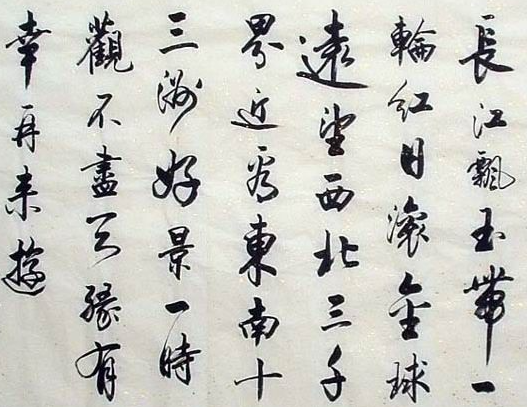 長江飄玉帶一
輪紅日滾金球
遠望西北三千
界近看東南十
三洲好景一時
觀不盡天緣有
幸再来遊